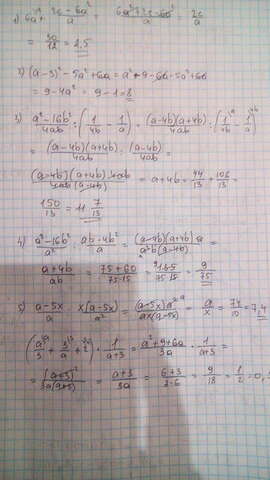 1) 6a + (2c - 6a²)/a = (6a² + 2c - 6a²)/a = 2c/a
= 30/12 = 2,5
2) (a-3)² - 5a² + 6a = a² + 9 - 6a - 5a² + 6a
= 9 - 4a² = 9 - 1 = 8
3) (a² - 16b²)/4ab : (1/4b - 1/a) = (a-4b)(a+4b)/4ab : (1/4b - 1/a)
= (a-4b)(a+4b)/4ab : (a-4b)/4ab =
(a-4b)(a+4b)·4ab/4ab(a-4b) = a + 4b = 44/13 + 106/13 =
150/13 = 11 7/13
4) (a² - 16b²)/a² · (ab - 4b²)/a = (a-4b)(a+4b)a/a²b(a-4b) =
(a+4b)/ab = (75+60)/75·15 = /75·15 = 9/75
5) (a-5x)/a : x(a-5x)/a² = (a-5x)a²/ax(a-5x) = a/x = 74/10 = 7,4
(a/3 + 3/a + 2) · 1/(a+3) = (a² + 9 + 6a)/3a · 1/(a+3) =
= (a+3)²/3a(a+3) = (a+3)/3a = (6+3)/3·6 = 9/18 = 1/2 = 0,